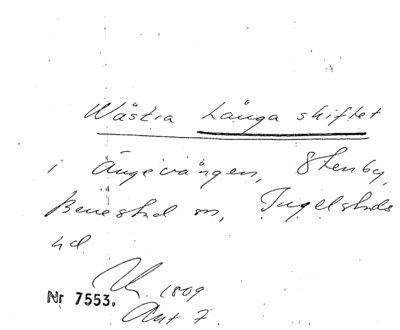 Wästra Långa shiftet
i Ängevången, Stenby,
Benestad sn, Ingelstads
hd
1809
Nr 7553. Akt 7.